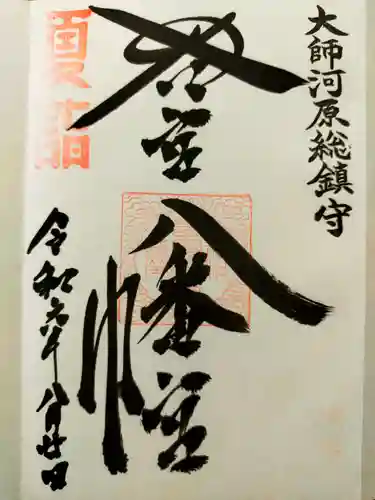 大師河原総鎮守
若宮
八幡宮
夏詣
令和六年八月廿四日